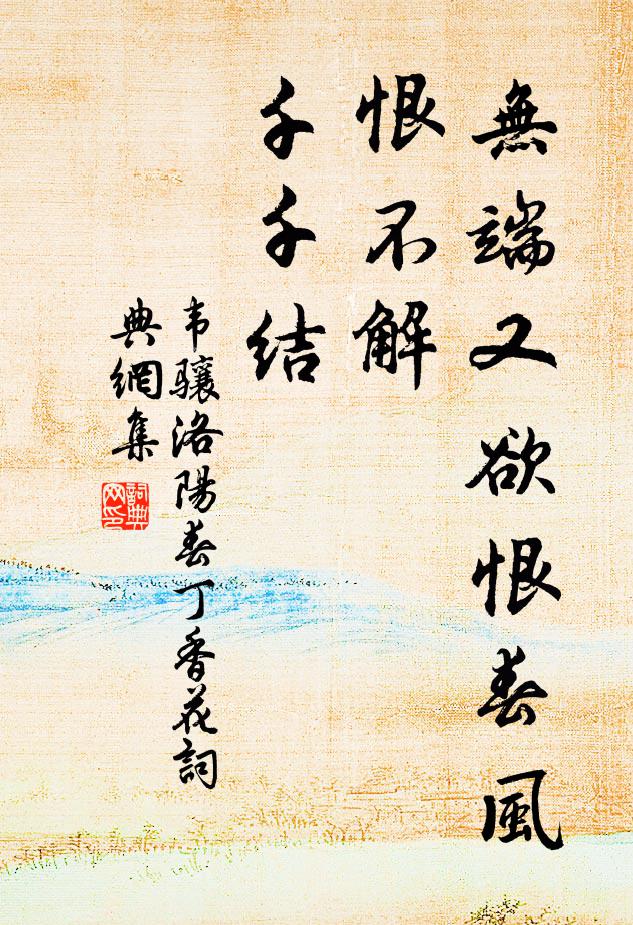 無端又欲恨春風
恨不解
千千结
韦骧洛陽春丁香花詞
典網集
詞典
网印